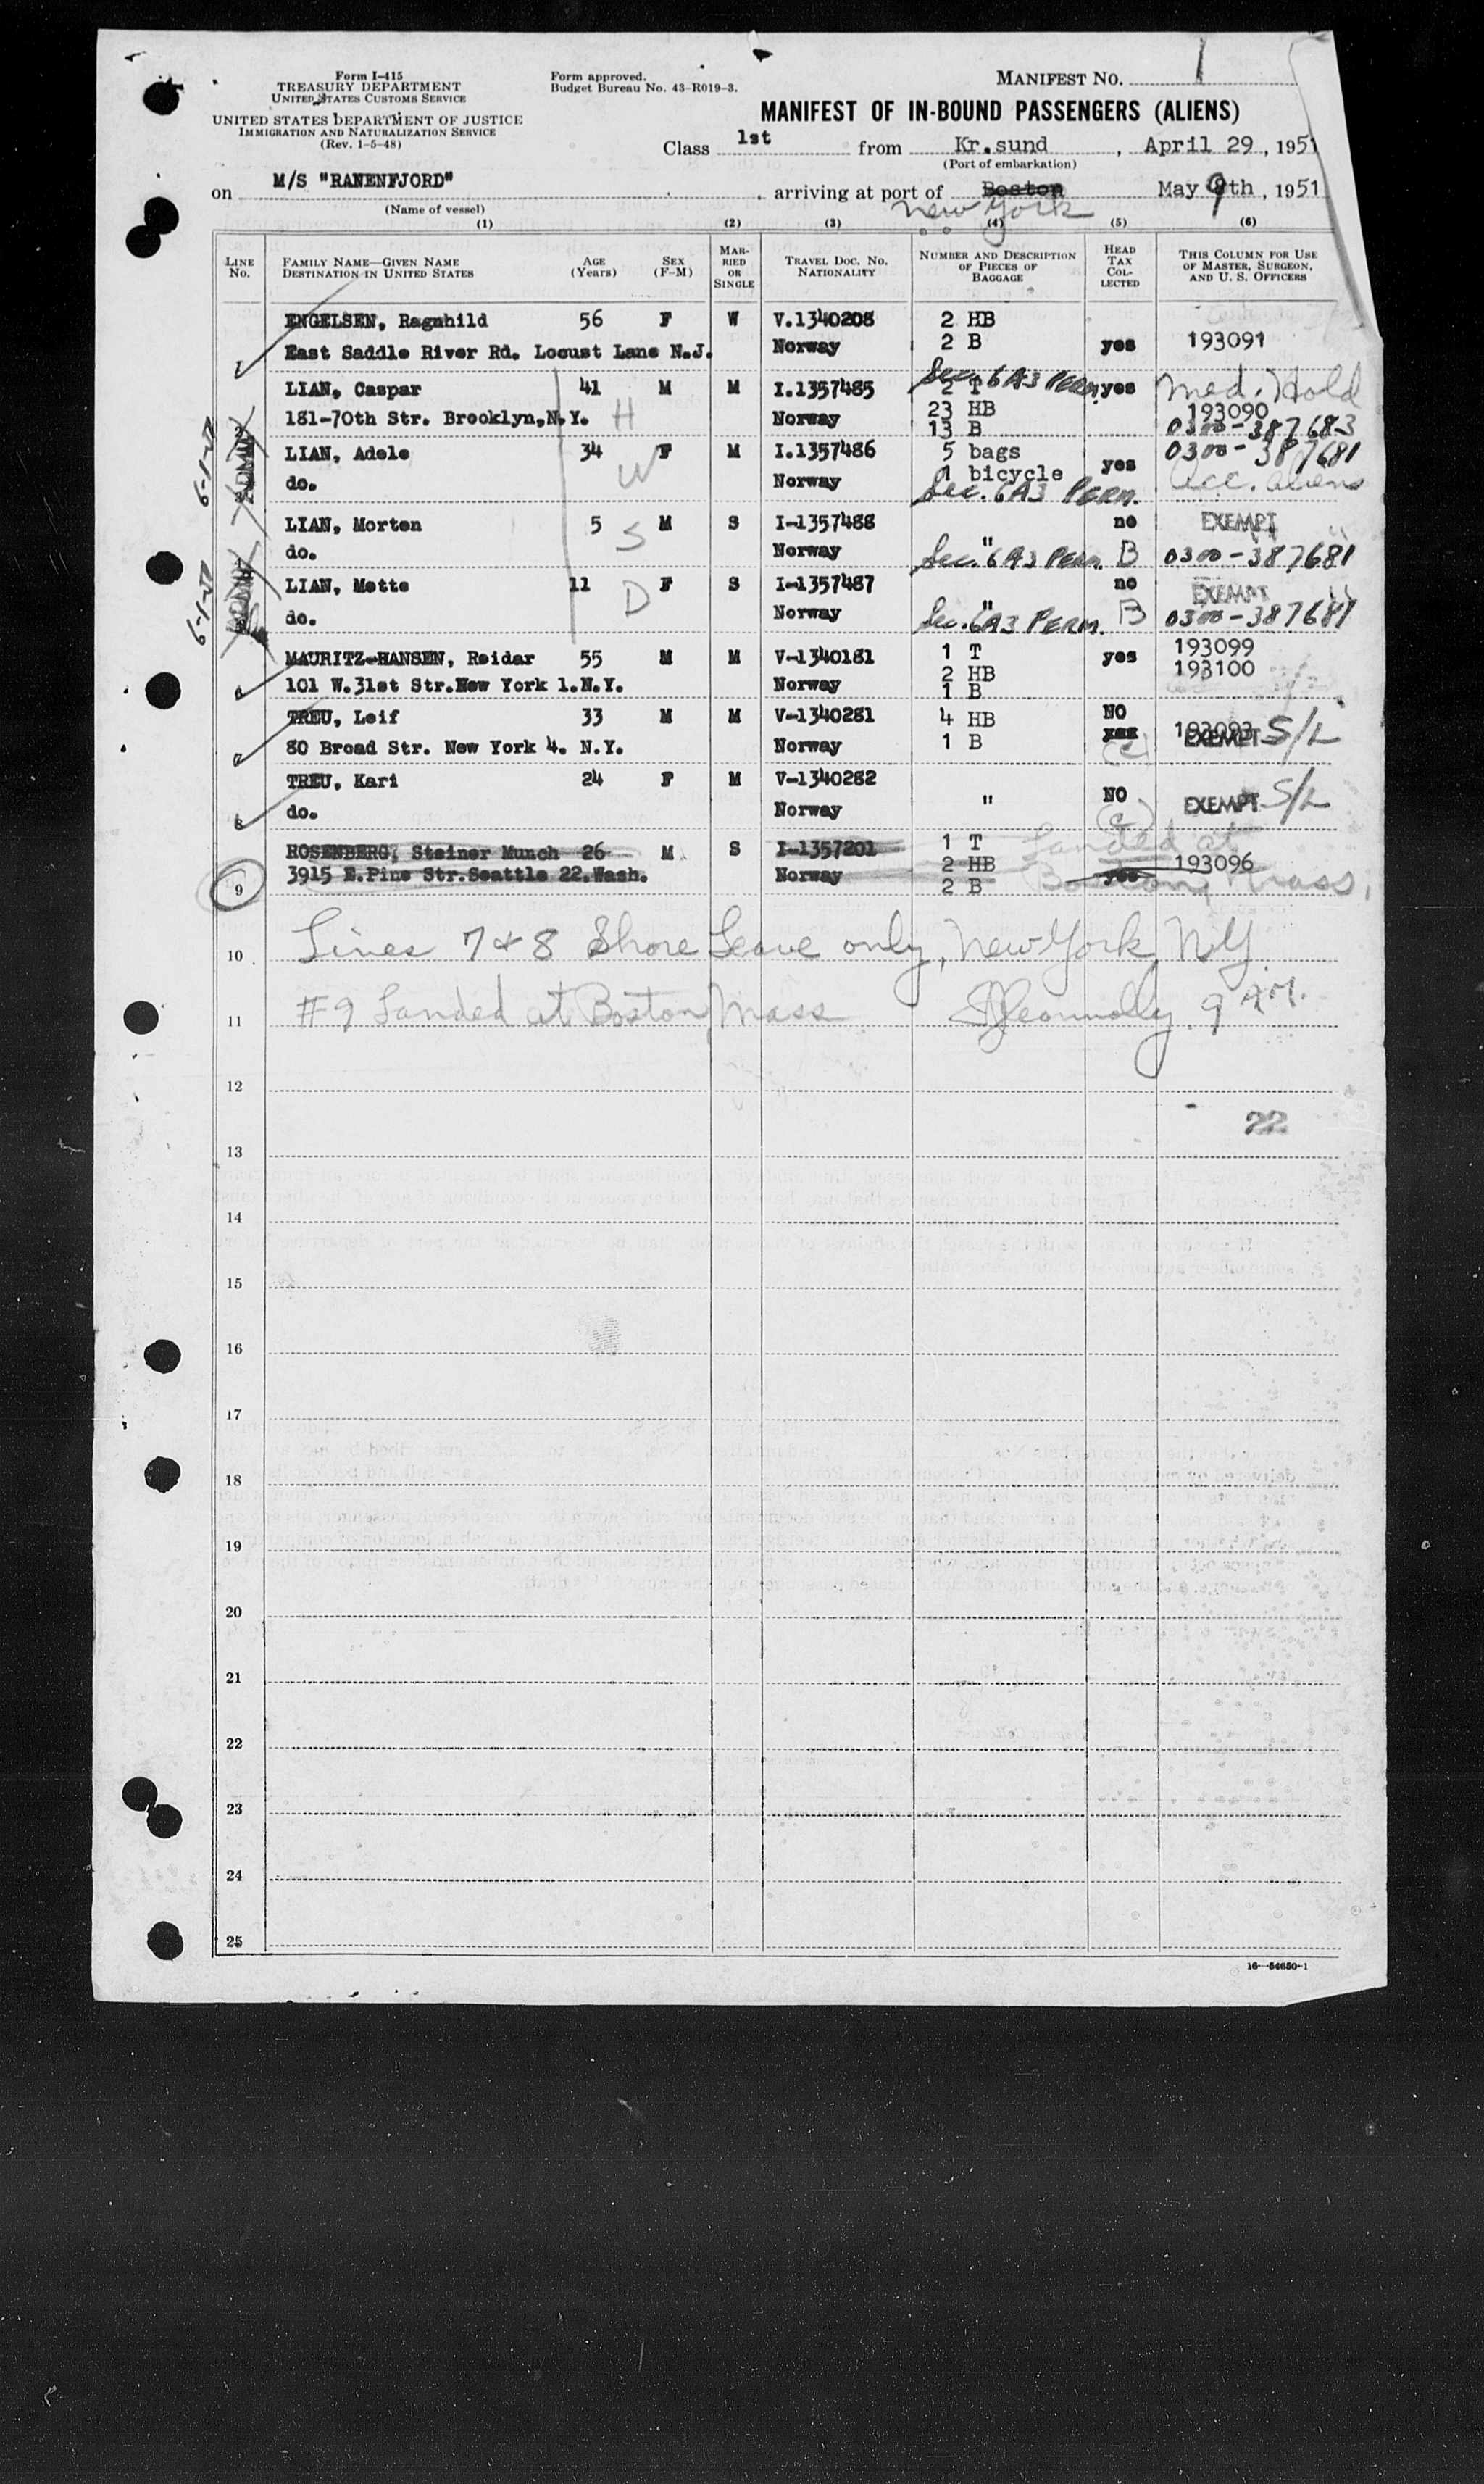 Form I-415
TREASURY DEPARTMENT
UNITED STATES CUSTOMS SERVICE
UNITED STATES DEPARTMENT OF JUSTICE
IMMIGRATION AND NATURALIZATION SERVICE
(Rev. 1-5-48)
Form approved.
Budget Bureau No. 43-R019-3.
MANIFEST NO. 1
MANIFEST OF IN-BOUND PASSENGERS (ALIENS)
Class 1st from Kr.sund, April 29, 1951
(Port of embarkation)
on M/S "RANENFJORD" arriving at port of Boston May 9th, 1951
New York
(Name of vessel)
(1) (2) (3) (4) (5) (6)
LINE NO.
FAMILY NAME—GIVEN NAME
DESTINATION IN UNITED STATES
AGE (Years)
SEX (F-M)
MARRIED OR SINGLE
TRAVEL DOC. NO.
NATIONALITY
NUMBER AND DESCRIPTION OF PIECES OF BAGGAGE
HEAD TAX COLLECTED
THIS COLUMN FOR USE OF MASTER, SURGEON, AND U. S. OFFICERS
ENGELSEN, Ragnhild 56 F W V.1340208 2 HB
East Saddle River Rd. Locust Lane N.J. Norway 2 B yes 193091
LIAN, Caspar 41 M M I.1357485 Sec. 6A3 PERM. 2 T yes Med. Hold
181-70th Str. Brooklyn,N.Y. H Norway 23 HB 193090
13 B 0300-387683
LIAN, Adele 34 F M I.1357486 5 bags 0300-387681
do. W Norway 1 bicycle yes Acc. aliens
Sec. 6A3 PERM.
LIAN, Morten 5 M S I-1357488 no EXEMPT
do. S Norway " Sec. 6A3 PERM. B 0300-387681
LIAN, Mette 11 F S I-1357487 no EXEMPT
do. D Norway " Sec. 6A3 PERM. B 0300-387681
6-1-51
6-1-51
MAURITZ-HANSEN, Reidar 55 M M V-1340181 1 T yes 193099
101 W.31st Str.New York 1.N.Y. Norway 2 HB 193100
1 B
TREU, Leif 33 M M V-1340281 4 HB NO
80 Broad Str. New York 4. N.Y. Norway 1 B yes (c) 193093 EXEMPT S/L
TREU, Kari 24 F M V-1340282
do. Norway " NO (c) EXEMPT S/L
8
ROSENBERG, Steiner Munch 26 M S I-1357201 1 T Landed at
3915 E.Pine Str.Seattle 22.Wash. Norway 2 HB yes 193096
9 2 B Boston, Mass,
10 Lines 7 & 8 Shore Leave only, New York, N.Y.
11 #9 Landed at Boston, Mass 9 AM.
12
22
13
14
15
16
17
18
19
20
21
22
23
24
25
16—54650-1